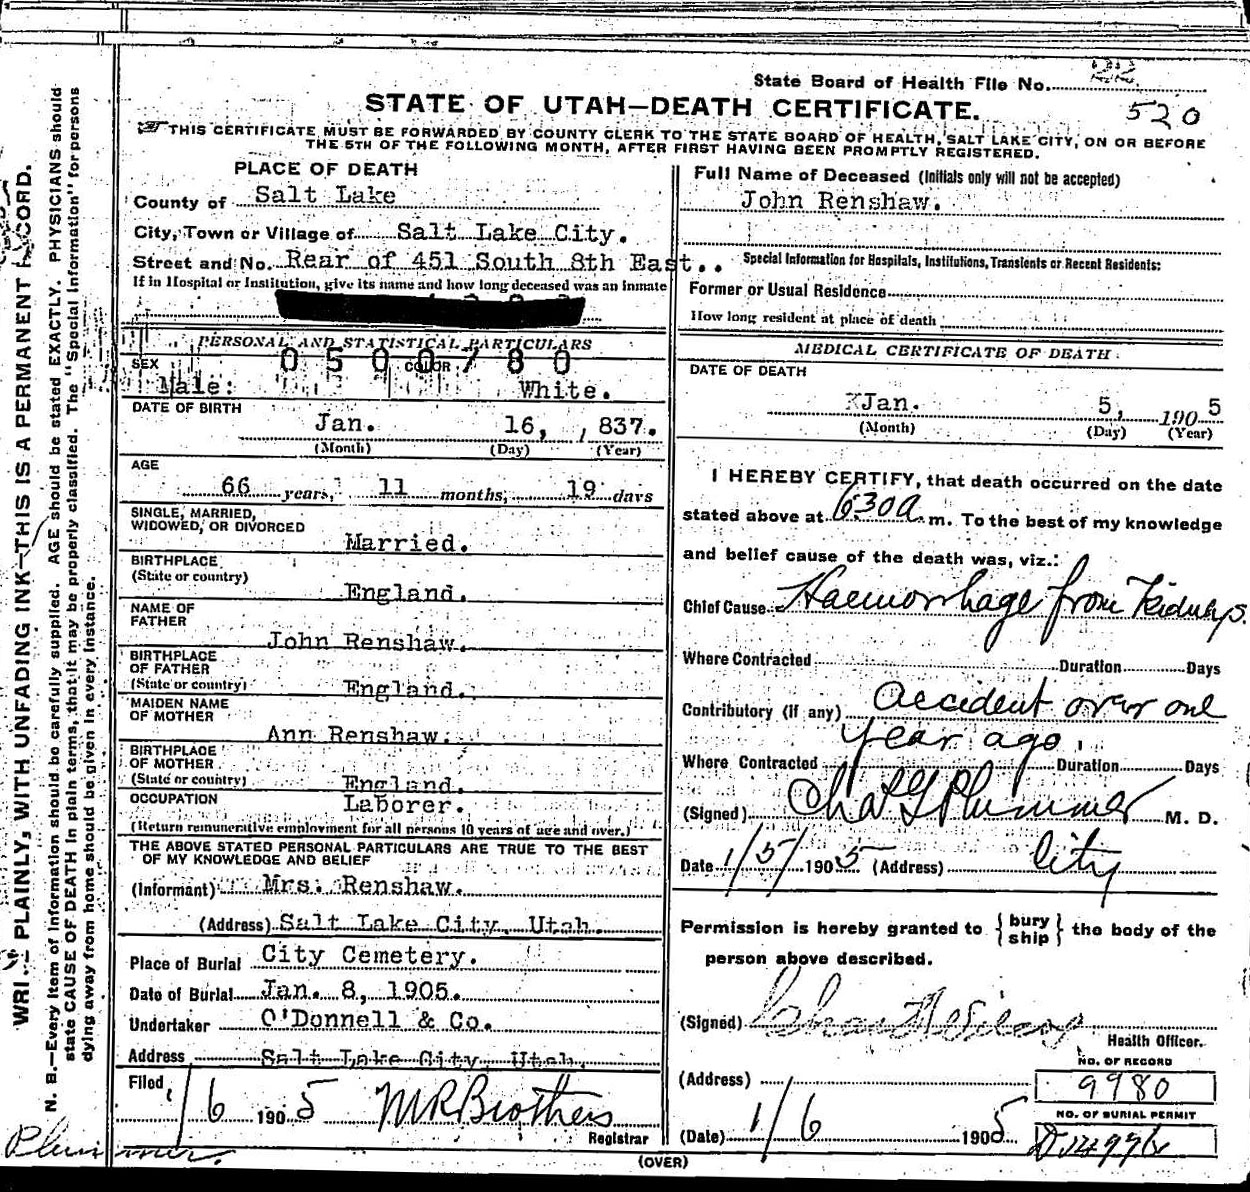 State Board of Health File No. 22
520
STATE OF UTAH—DEATH CERTIFICATE.
THIS CERTIFICATE MUST BE FORWARDED BY COUNTY CLERK TO THE STATE BOARD OF HEALTH, SALT LAKE CITY, ON OR BEFORE
THE 5TH OF THE FOLLOWING MONTH, AFTER FIRST HAVING BEEN PROMPTLY REGISTERED.
PLACE OF DEATH
County of Salt Lake
City, Town or Village of Salt Lake City.
Street and No. Rear of 451 South 8th East..
If in Hospital or Institution, give its name and how long deceased was an inmate
PERSONAL AND STATISTICAL PARTICULARS
0500780
SEX COLOR
Male: White.
DATE OF BIRTH
Jan. 16, 837.
(Month) (Day) (Year)
AGE
66 years, 11 months, 19 days
SINGLE, MARRIED,
WIDOWED, OR DIVORCED
Married.
BIRTHPLACE
(State or country)
England.
NAME OF
FATHER
John Renshaw.
BIRTHPLACE
OF FATHER
(State or country)
England.
MAIDEN NAME
OF MOTHER
Ann Renshaw.
BIRTHPLACE
OF MOTHER
(State or country)
England.
OCCUPATION
Laborer.
(Return remunerative employment for all persons 10 years of age and over.)
THE ABOVE STATED PERSONAL PARTICULARS ARE TRUE TO THE BEST
OF MY KNOWLEDGE AND BELIEF
(Informant) Mrs. Renshaw.
(Address) Salt Lake City, Utah.
Place of Burial City Cemetery.
Date of Burial Jan. 8, 1905.
Undertaker O'Donnell & Co.
Address Salt Lake City, Utah.
Filed
1/6 1905 M R Brothers
Registrar
Full Name of Deceased (Initials only will not be accepted)
John Renshaw.
Special Information for Hospitals, Institutions, Transients or Recent Residents:
Former or Usual Residence
How long resident at place of death
MEDICAL CERTIFICATE OF DEATH.
DATE OF DEATH
Jan. 5, 1905
(Month) (Day) (Year)
I HEREBY CERTIFY, that death occurred on the date
stated above at 630a.m. To the best of my knowledge
and belief cause of the death was, viz.:
Chief Cause Haemorrhage from Kidneys.
Where Contracted Duration Days
Contributory (if any) accident over one
year ago.
Where Contracted Duration Days
(Signed) Chas G Plummer M. D.
Date 1/5/1905 (Address) City
Permission is hereby granted to {bury
ship} the body of the
person above described.
(Signed)
Health Officer.
NO. OF RECORD
(Address)
9980
NO. OF BURIAL PERMIT
(Date) 1/6 1905
(OVER)
WRITE PLAINLY, WITH UNFADING INK—THIS IS A PERMANENT RECORD.
N. B.—Every item of information should be carefully supplied. AGE should be stated EXACTLY. PHYSICIANS should
state CAUSE OF DEATH in plain terms, that it may be properly classified. The "Special Information" for persons
dying away from home should be given in every instance.
Plummer.